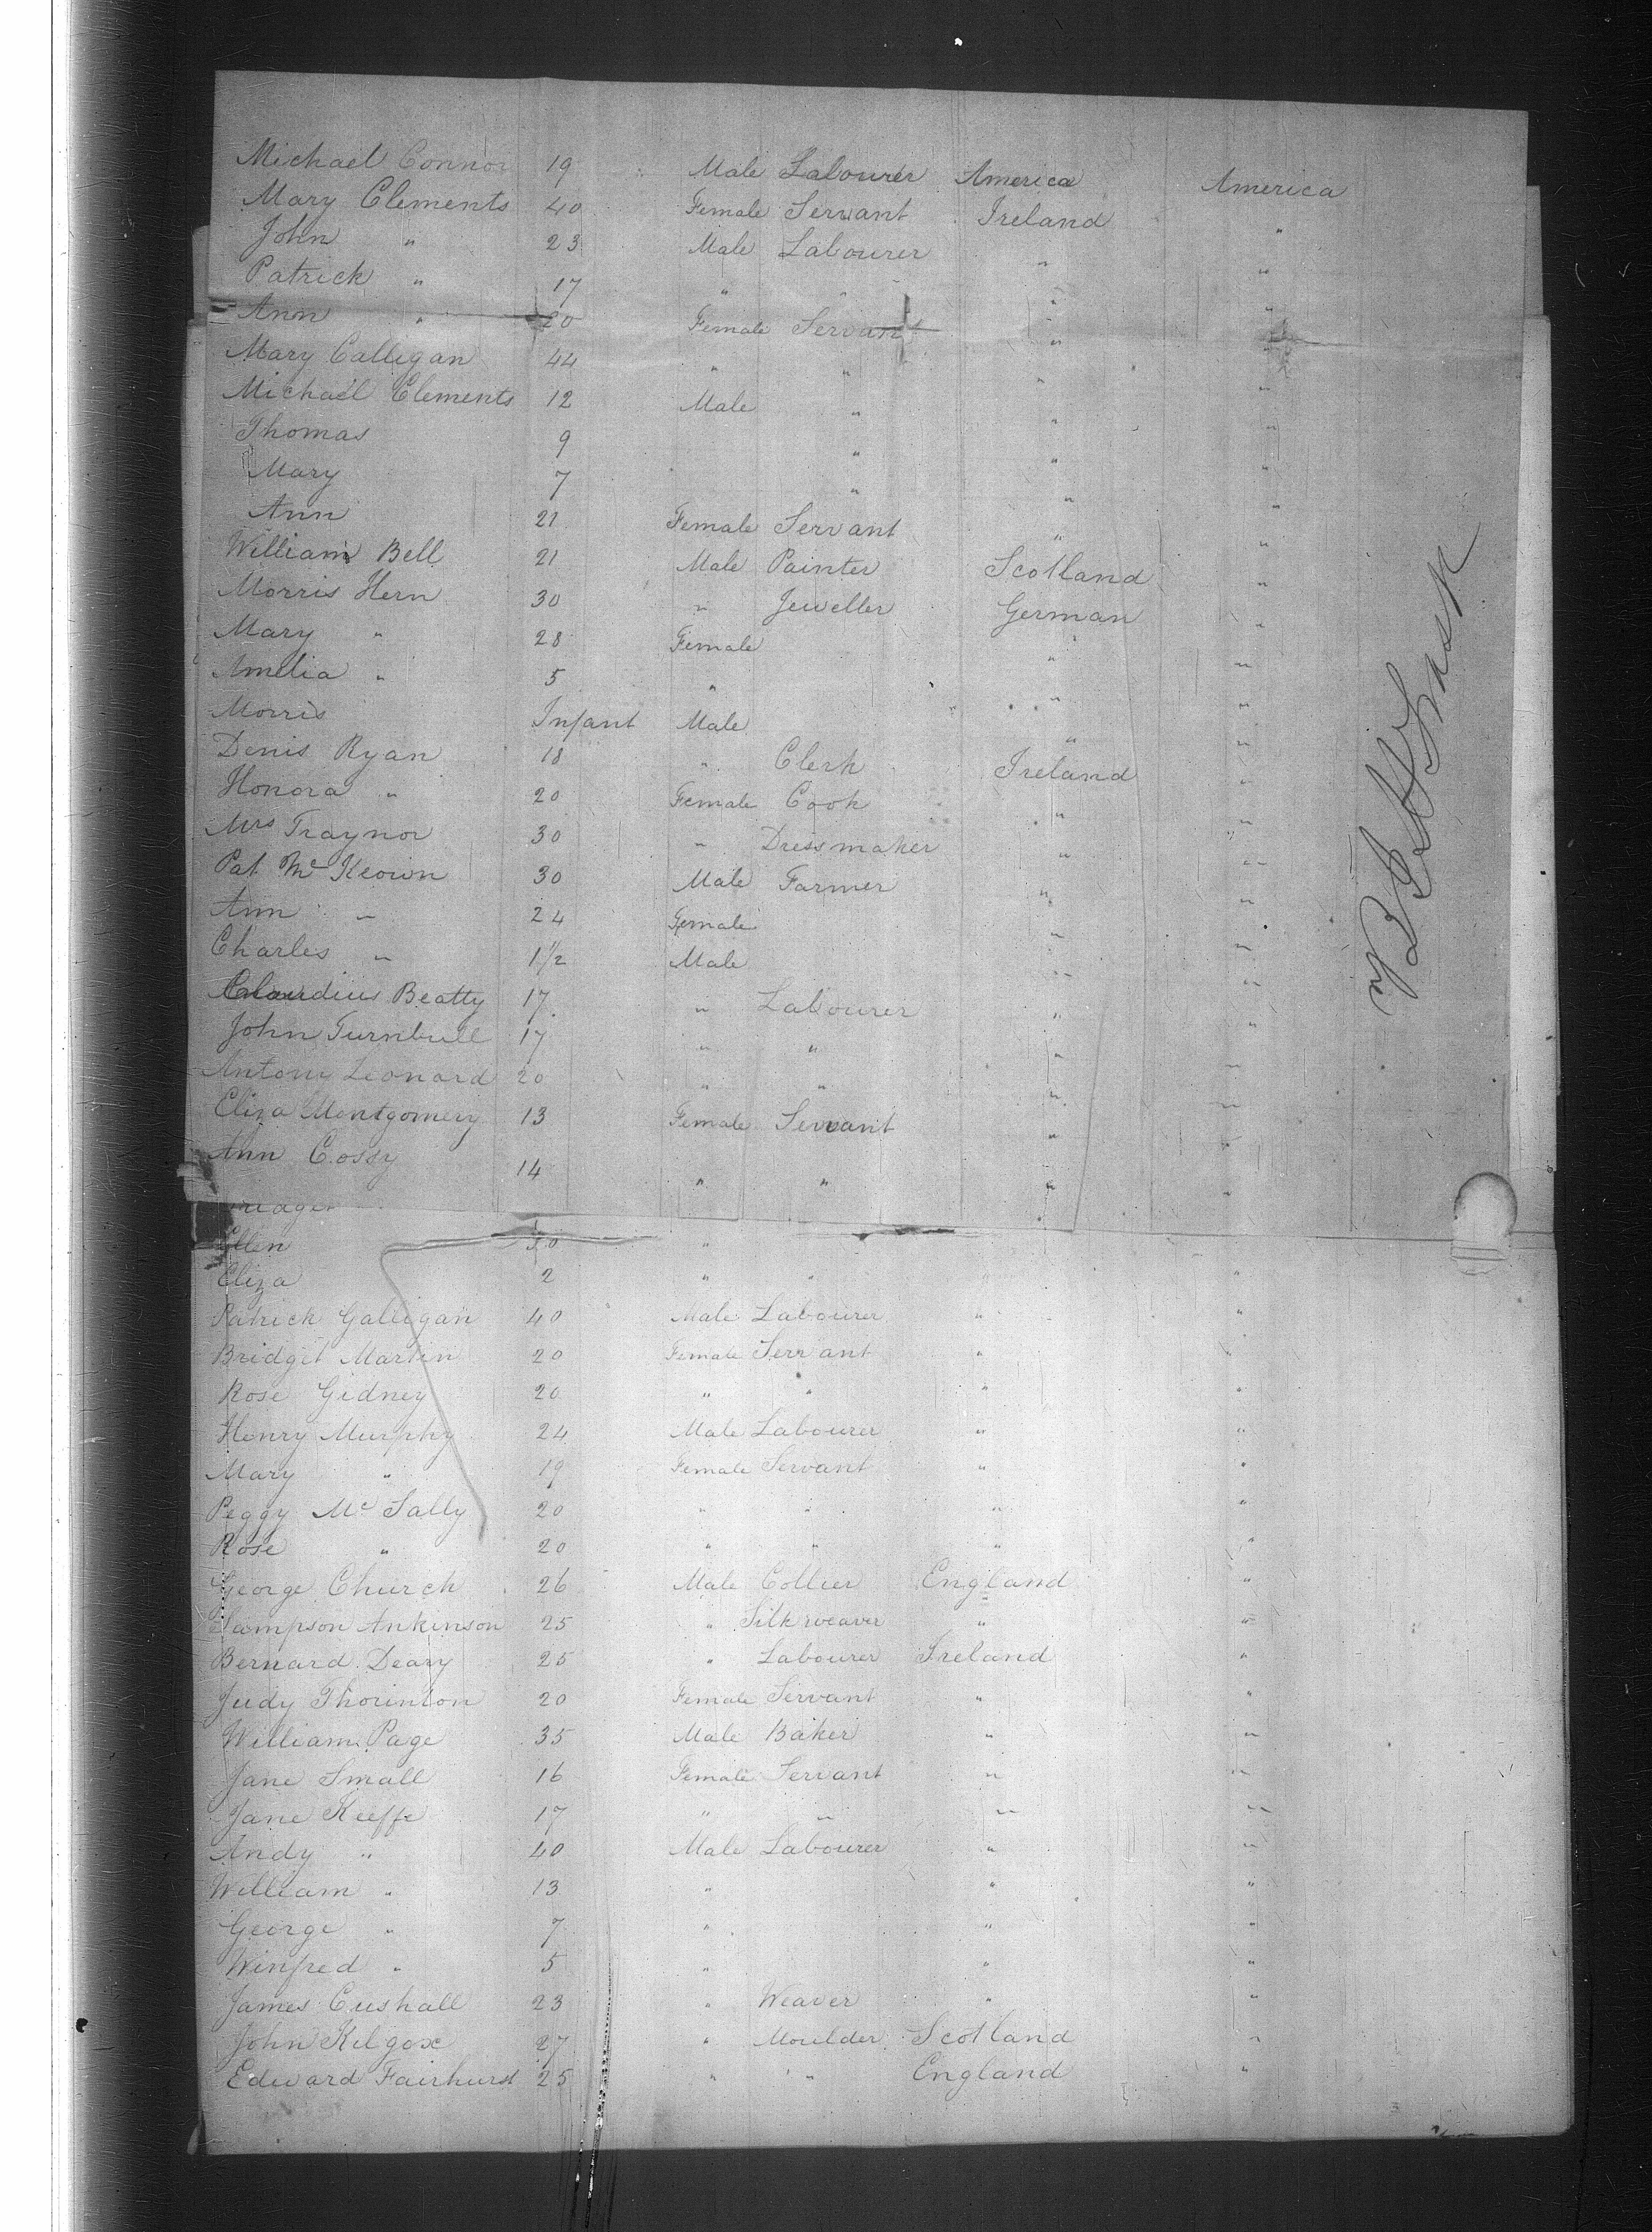 Michael Connor 19 Male Labourer America America
Mary Clements 40 Female Servant Ireland "
John " 23 Male Labourer " "
Patrick " 17 " " " "
Ann " 20 Female Servant " "
Mary Calligan 44 " " " "
Michael Clements 12 Male " " "
Thomas 9 " " "
Mary 7 " " "
Ann 21 Female Servant " "
William Bell 21 Male Painter Scotland "
Morris Hern 30 " Jeweller German "
Mary " 28 Female " "
Amelia " 5 " " "
Morris Infant Male " "
Denis Ryan 18 " Clerk Ireland "
Honora " 20 Female Cook " "
Mrs Traynor 30 " Dressmaker " "
Pat McKeown 30 Male Farmer " "
Ann " 24 Female " "
Charles " 1 1/2 Male " "
Claudius Beatty 17 " Labourer " "
John Turnbull 17 " " " "
Antony Leonard 20 " " " "
Eliza Montgomery 13 Female Servant " "
Ann Cossy 14 " " " "
Ellen 30 "
Eliza 2 " " "
Patrick Galligan 40 Male Labourer " "
Bridget Martin 20 Female Servant " "
Rose Gidney 20 " " " "
Henry Murphy 24 Male Labourer " "
Mary " 19 Female Servant " "
Peggy Mc Sally 20 " " " "
Rose " 20 " " " "
George Church 26 Male Collier England "
Sampson Ankinson 25 " Silk weaver " "
Bernard Deary 25 " Labourer Ireland "
Judy Thorinton 20 Female Servant " "
William Page 35 Male Baker " "
Jane Small 16 Female Servant " "
Jane Keeffe 17 " " " "
Andy " 40 Male Labourer " "
William " 13 " " "
George " 7 " " "
Winfred " 5 " " "
James Cushall 23 " Weaver " "
John Kilgox 27 " Moulder Scotland "
Edward Fairhurst 25 " " England "